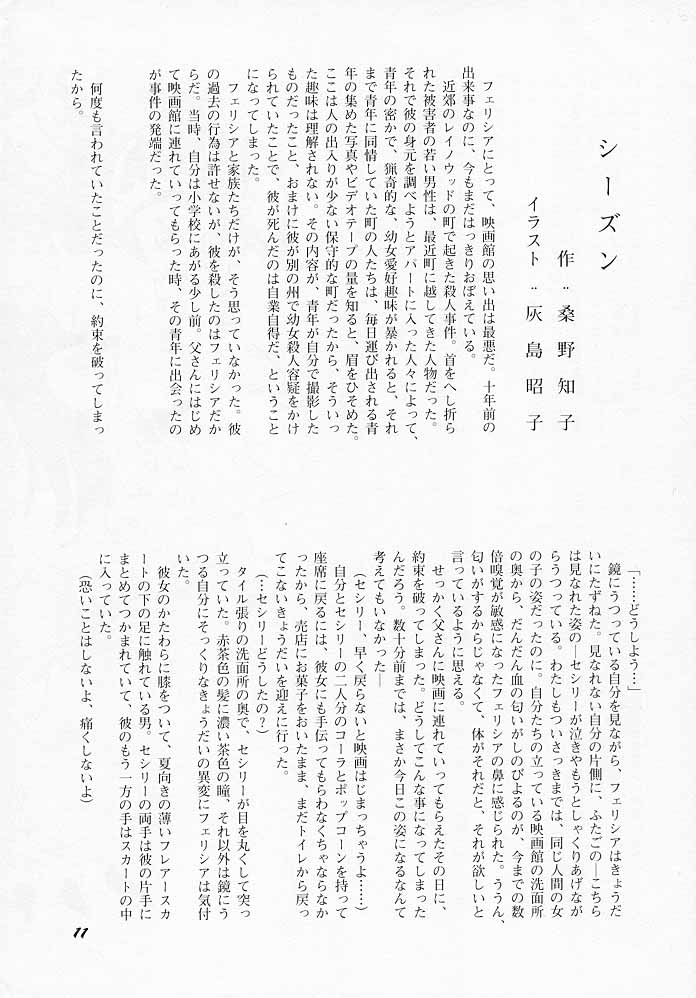 シーズン
作：桑野知子
イラスト：灰島昭子
フェリシアにとって、映画館の思い出は最悪だ。十年前の
出来事なのに、今もまだはっきりおぼえている。
近郊のレイノウッドの町で起きた殺人事件。首をへし折ら
れた被害者の若い男性は、最近町に越してきた人物だった。
それで彼の身元を調べようとアパートに入った人々によって、
青年の密かで、猟奇的な、幼女愛好趣味が暴かれると、それ
まで青年に同情していた町の人たちは、毎日運び出される青
年の集めた写真やビデオテープの量を知ると、眉をひそめた。
ここは人の出入りが少ない保守的な町だったから、そういっ
た趣味は理解されない。その内容が、青年が自分で撮影した
ものだったこと、おまけに彼が別の州で幼女殺人容疑をかけ
られていたことで、彼が死んだのは自業自得だ、ということ
になってしまった。
フェリシアと家族たちだけが、そう思っていなかった。彼
の過去の行為は許せないが、彼を殺したのはフェリシアだか
らだ。当時、自分は小学校にあがる少し前。父さんにはじめ
て映画館に連れていってもらった時、その青年に出会ったの
が事件の発端だった。
何度も言われていたことだったのに、約束を破ってしまっ
たから。
「……どうしよう…」
鏡にうつっている自分を見ながら、フェリシアはきょうだ
いにたずねた。見なれない自分の片側に、ふたごの―こちら
は見なれた姿の―セシリーが泣きやもうとしゃくりあげなが
らうつっている。わたしもついさっきまでは、同じ人間の女
の子の姿だったのに。自分たちの立っている映画館の洗面所
の奥から、だんだん血の匂いがしのびよるのが、今までの数
倍嗅覚が敏感になったフェリシアの鼻に感じられた。ううん、
匂いがするからじゃなくて、体がそれだと、それが欲しいと
言っているように思える。
せっかく父さんに映画に連れていってもらえたその日に、
約束を破ってしまった。どうしてこんな事になってしまった
んだろう。数十分前までは、まさか今日この姿になるなんて
考えてもいなかった―
（セシリー、早く戻らないと映画はじまっちゃうよ……）
自分とセシリーの二人分のコーラとポップコーンを持って
座席に戻るには、彼女にも手伝ってもらわなくちゃならなか
ったから、売店にお菓子をおいたまま、まだトイレから戻っ
てこないきょうだいを迎えに行った。
（…セシリーどうしたの？）
タイル張りの洗面所の奥で、セシリーが目を丸くして突っ
立っていた。赤茶色の髪に濃い茶色の瞳、それ以外は鏡にう
つる自分にそっくりなきょうだいの異変にフェリシアは気付
いた。
彼女のかたわらに膝をついて、夏向きの薄いフレアースカ
ートの下の足に触れている男。セシリーの両手は彼の片手に
まとめてつかまれていて、彼のもう一方の手はスカートの中
に入っていた。
（恐いことはしないよ、痛くしないよ）
11